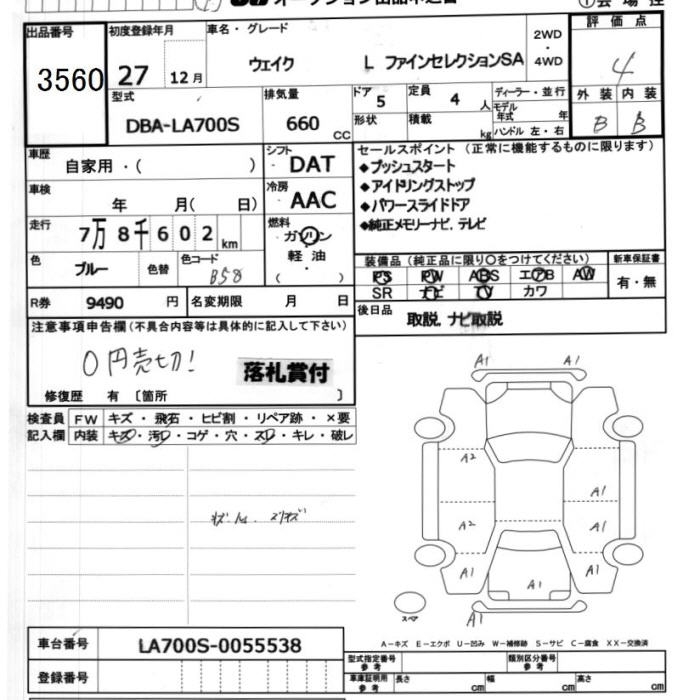 出品番号
3560
初度登録年月
27
12月
車名・グレード
ウェイク L ファインセレクションSA
2WD
・
4WD
評価点
4
外装 内装
B B
型式
DBA-LA700S
排気量
660 CC
ドア 5
形状
定員 4 人
積載 kg
ディーラー・並行
モデル
年式 年
ハンドル 左・右
車歴
自家用・( )
シフト
DAT
車検
年 月( 日)
冷房
AAC
走行
7万8千602km
燃料
ガソリン
軽油
( )
色
ブルー
色替
色コード
B58
R券 9490 円
名変期限 月 日
セールスポイント (正常に機能するものに限ります)
◆プッシュスタート
◆アイドリングストップ
◆パワースライドドア
◆純正メモリーナビ、テレビ
装備品(純正品に限り〇をつけてください)
PS PW ABS エアB AW
SR ナビ TV カワ
新車保証書
有・無
後日品
取説、ナビ取説
注意事項申告欄(不具合内容等は具体的に記入して下さい)
0円売切!
落札賞付
修復歴 有 〔箇所 〕
検査員 FW キズ・飛石・ヒビ割・リペア跡・×要
記入欄 内装 キズ・汚レ・コゲ・穴・スレ・キレ・破レ
A1 A1
A2
A1
A2 A1
A1 A1 A1
スペア
A1
A-キズ E-エクボ U-凹み W-補修跡 S-サビ C-腐食 XX-交換済
車台番号 LA700S-0055538
登録番号
型式指定番号
参考
類別区分番号
参考
車庫証明用
参考
長さ cm 幅 cm 高さ cm